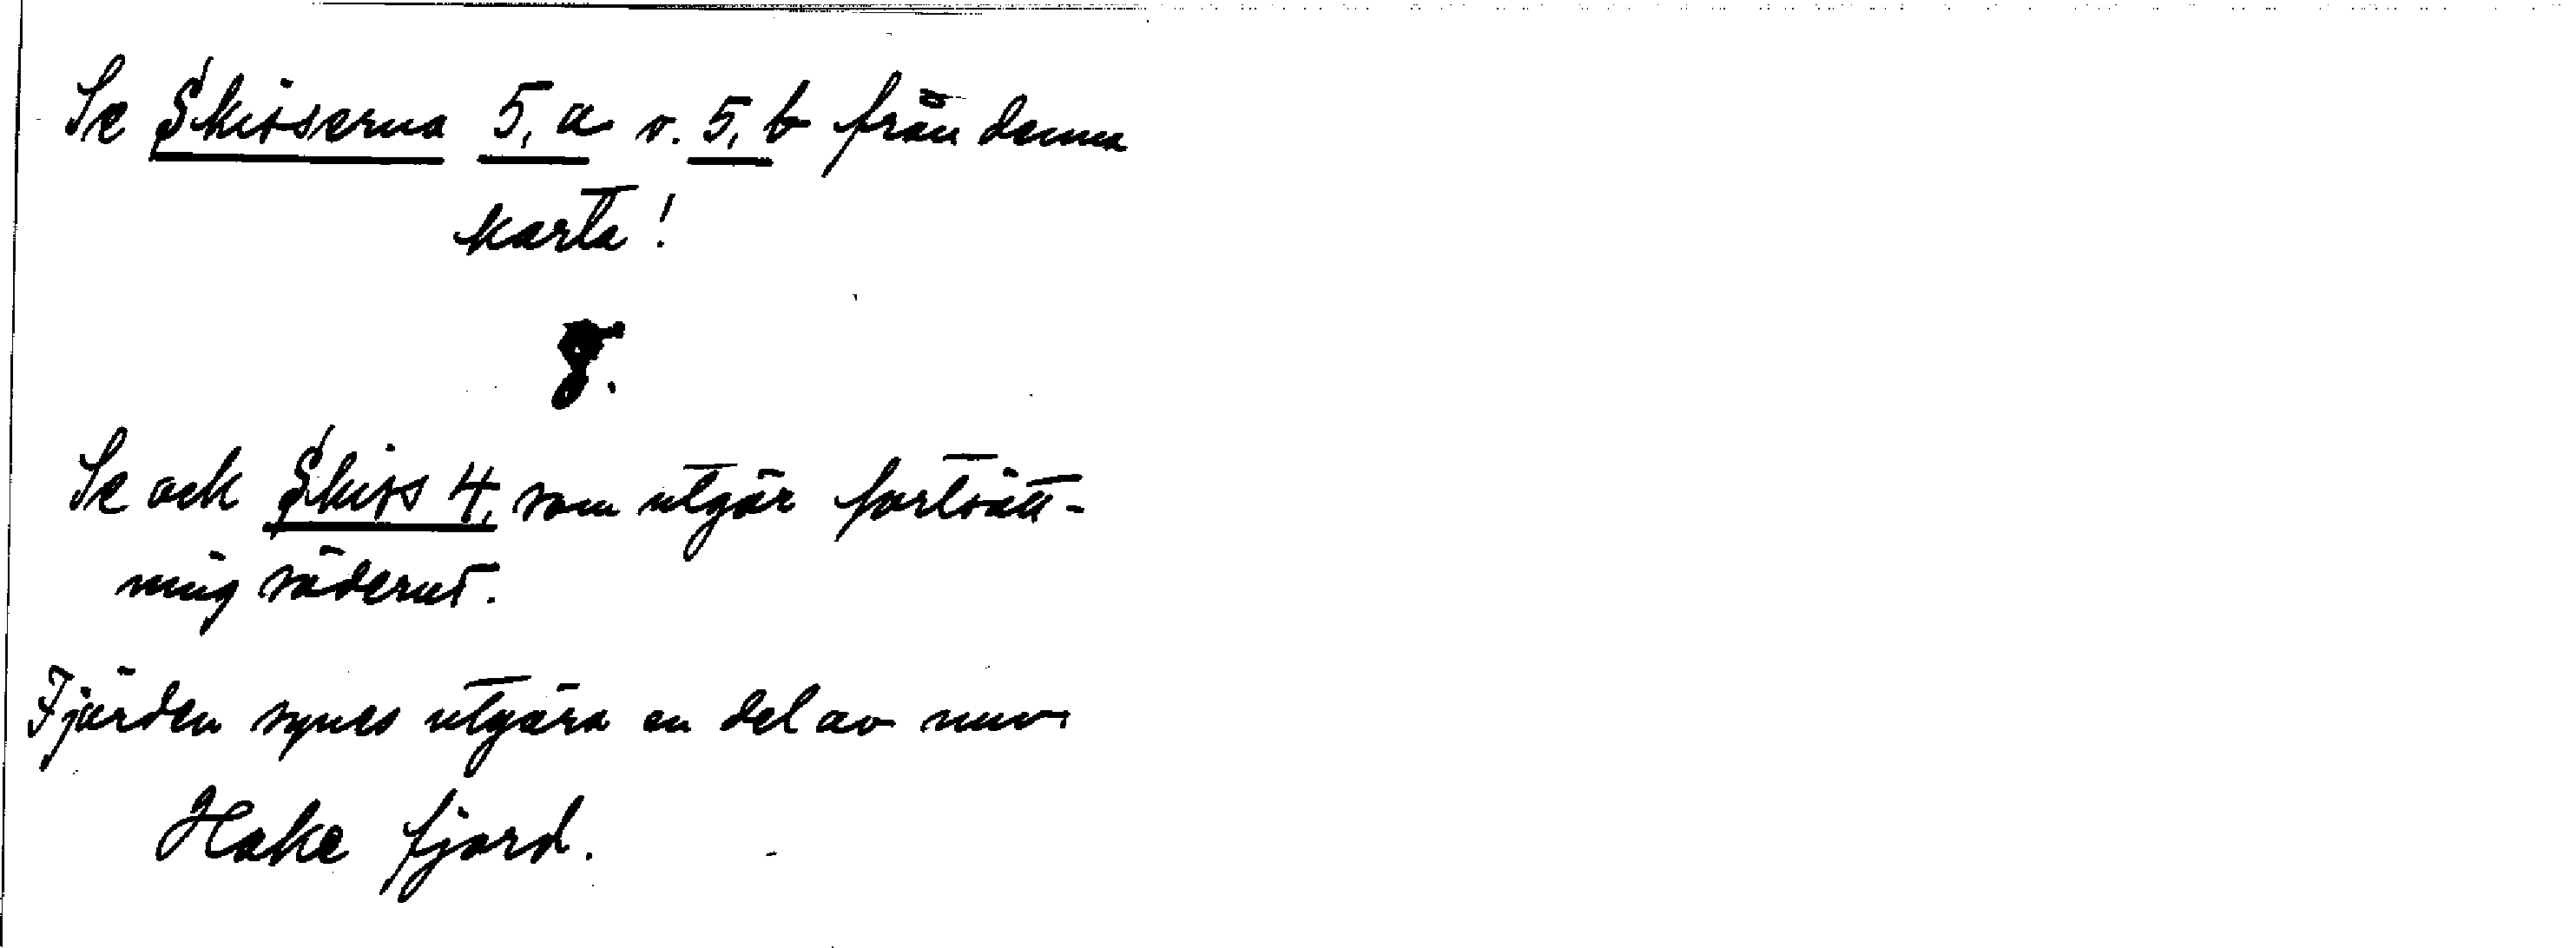 Se Skisserna 5, a o. 5, b från denna
karta!
8.
Se ock Skiss 4, som utgör fortsätt-
ning söderut.
Fjärden synes utgöra en del av nuv.
Hake fjord.